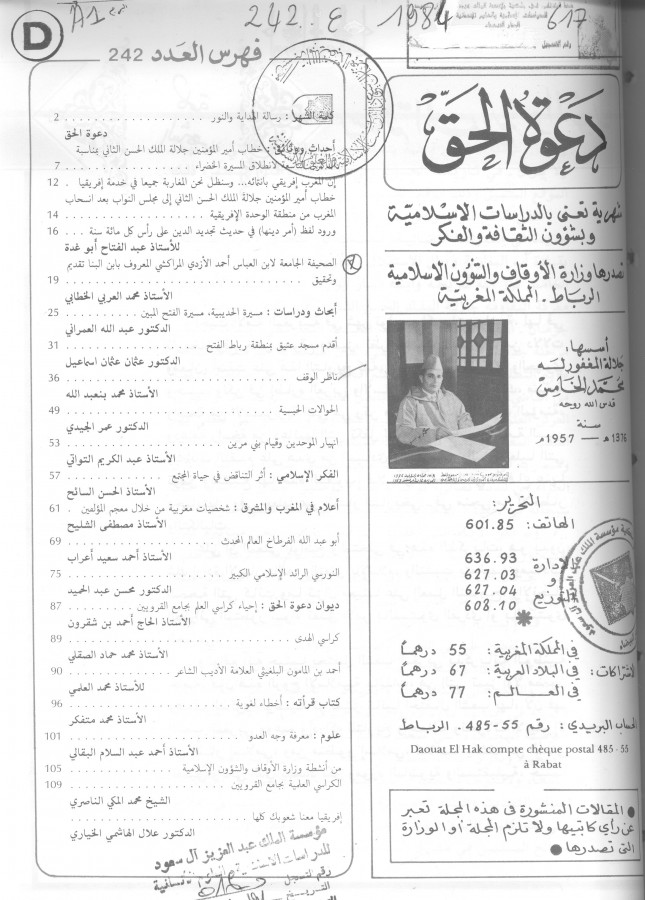 D
A1
242 ع
1984
617
رقم التسجيل
دعوة الحق
شهرية تعنى بالدراسات الاسلامية
وبشؤون الثقافة والفكر
تصدرها وزارة الأوقاف والشؤون الاسلامية
الرباط. المملكة المغربية
أسسها:
جلالة المغفور له
محمد الخامس
قدس الله روحه
سنة
1376 هـ — 1957 م
التحرير:
الهاتف: 601.85
الإدارة
و
التوزيع
636.93
627.03
627.04
608.10
في المملكة المغربية: 55 درهما
الاشتراكات: في البلاد العربية: 67 درهما
في العالم: 77 درهما
الحساب البريدي: رقم 55-485. الرباط
Daouat El Hak compte chèque postal 485-55
à Rabat
● المقالات المنشورة في هذه المجلة تعبر
عن رأي كاتبيها ولا تلزم المجلة أو الوزارة
التي تصدرها ●
فهرس العدد 242
كلمة الشهر : رسالة الهداية والنور 2
دعوة الحق
أحداث ووثائق : خطاب أمير المؤمنين جلالة الملك الحسن الثاني بمناسبة
لانطلاق المسيرة الخضراء 7
إن المغرب إفريقي بانتمائه... وسنظل نحن المغاربة جميعا في خدمة إفريقيا . 12
خطاب أمير المؤمنين جلالة الملك الحسن الثاني إلى مجلس النواب بعد انسحاب
المغرب من منظمة الوحدة الإفريقية 14
ورود لفظ (أمر دينها) في حديث تجديد الدين على رأس كل مائة سنة 16
للأستاذ عبد الفتاح أبو غدة
الصحيفة الجامعة لابن العباس أحمد الأزدي المراكشي المعروف بابن البنا تقديم
وتحقيق 19
الأستاذ محمد العربي الخطابي
أبحاث ودراسات : مسيرة الحديبية، مسيرة الفتح المبين 25
الدكتور عبد الله العمراني
أقدم مسجد عتيق بمنطقة رباط الفتح 31
الدكتور عثمان عثمان اسماعيل
ناظر الوقف 36
الأستاذ محمد بنعبد الله
الحوالات الحبسية 49
الدكتور عمر الجيدي
انهيار الموحدين وقيام بني مرين 53
الأستاذ عبد الكريم التواتي
الفكر الإسلامي : أثر التناقض في حياة المجتمع 57
الأستاذ الحسن السائح
أعلام في المغرب والمشرق : شخصيات مغربية من خلال معجم المؤلفين . 61
الأستاذ مصطفى الشليح
أبو عبد الله القرطاخ العالم المحدث 69
الأستاذ أحمد سعيد أعراب
النورسي الرائد الإسلامي الكبير 75
الدكتور محسن عبد الحميد
ديوان دعوة الحق : إحياء كراسي العلم بجامع القرويين 87
الأستاذ الحاج أحمد بن شقرون
كراسي الهدى 89
الأستاذ محمد حماد الصقلي
أحمد بن المامون البلغيثي العلامة الأديب الشاعر 90
للأستاذ محمد العلمي
كتاب قرأته : أخطاء لغوية 96
الأستاذ محمد متفكر
علوم : معرفة وجه العدو 101
الأستاذ أحمد عبد السلام البقالي
من أنشطة وزارة الأوقاف والشؤون الإسلامية 105
الكراسي العلمية بجامع القرويين 109
الشيخ محمد المكي الناصري
إفريقيا معنا شعوبك كلها
الدكتور علال الهاشمي الخياري
مؤسسة الملك عبد العزيز آل سعود
للدراسات الإسلامية والعلوم الإنسانية
رقم التسجيل
التاريخ